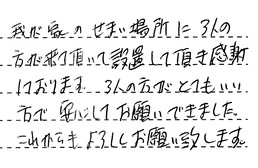 我が家のせまい場所に3人の
方が来て頂いて設置して頂き感謝
しております。3人の方がとてもいい
方で安心してお願いできました。
これからもよろしくお願い致します。